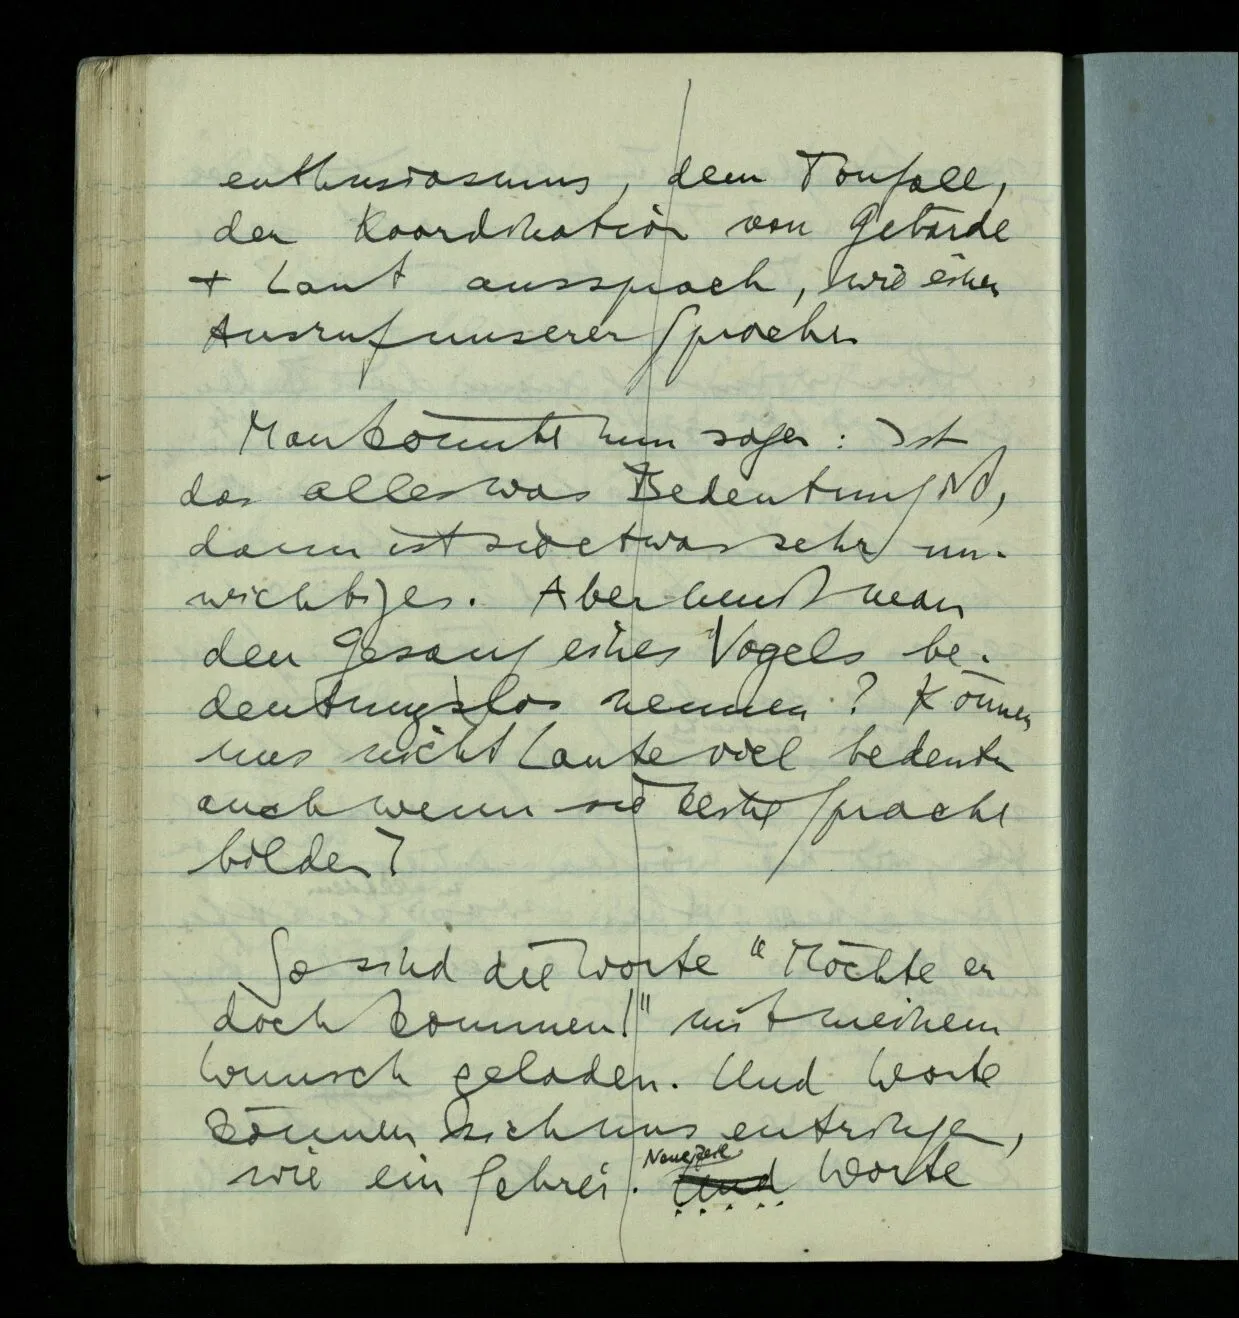 enthusiasmus, dem Tonfall,
der Koordination von Gebärde
+ Laut aussprach, wie einen
Ausruf unserer Sprache.
Man könnte nun sagen: Ist
das alles was Bedeutung ist,
dann ist sie etwas sehr un-
wichtiges. Aber muß man
den Gesang eines Vogels be-
deutungslos nennen? Können
uns nicht Laute viel bedeuten
auch wenn sie keine Sprache
bilden?
So sind die Worte "Möchte er
doch kommen!" mit meinem
Wunsch geladen. Und Worte
können sich uns entringen,
wie ein Schrei. Neue Zeile Und Worte